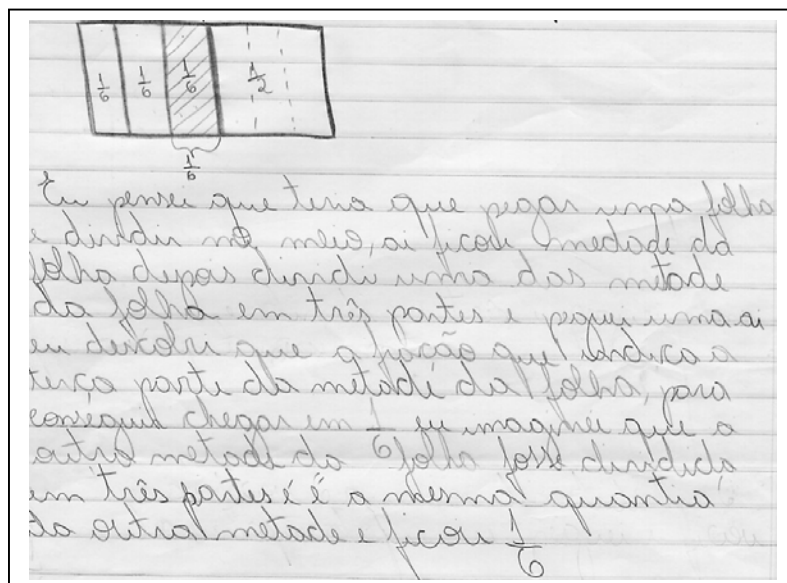 1/6 1/6 1/6 1/2
1/6
Eu pensei que teria que pegar uma folha
e dividir no meio, ai ficou medade da
folha depois dividi uma das metade
da folha em três partes e peguei uma ai
eu descobri que a fração que indica a
terça parte da metade da folha, para
conseguir chegar em 1/6 eu imaginei que a
outra metade da folha fosse dividida
em três partes é é a mesma quantia
da outra metade e ficou 1/6